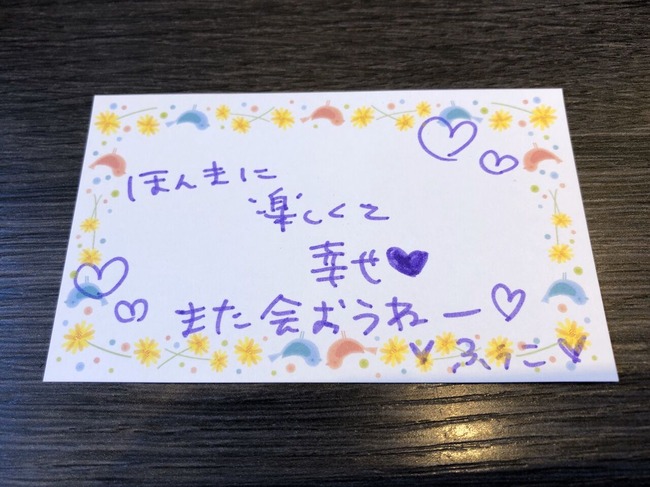 ほんまに
楽しくて
幸せ♥
また会おうねー♡
♡ふうこ♡